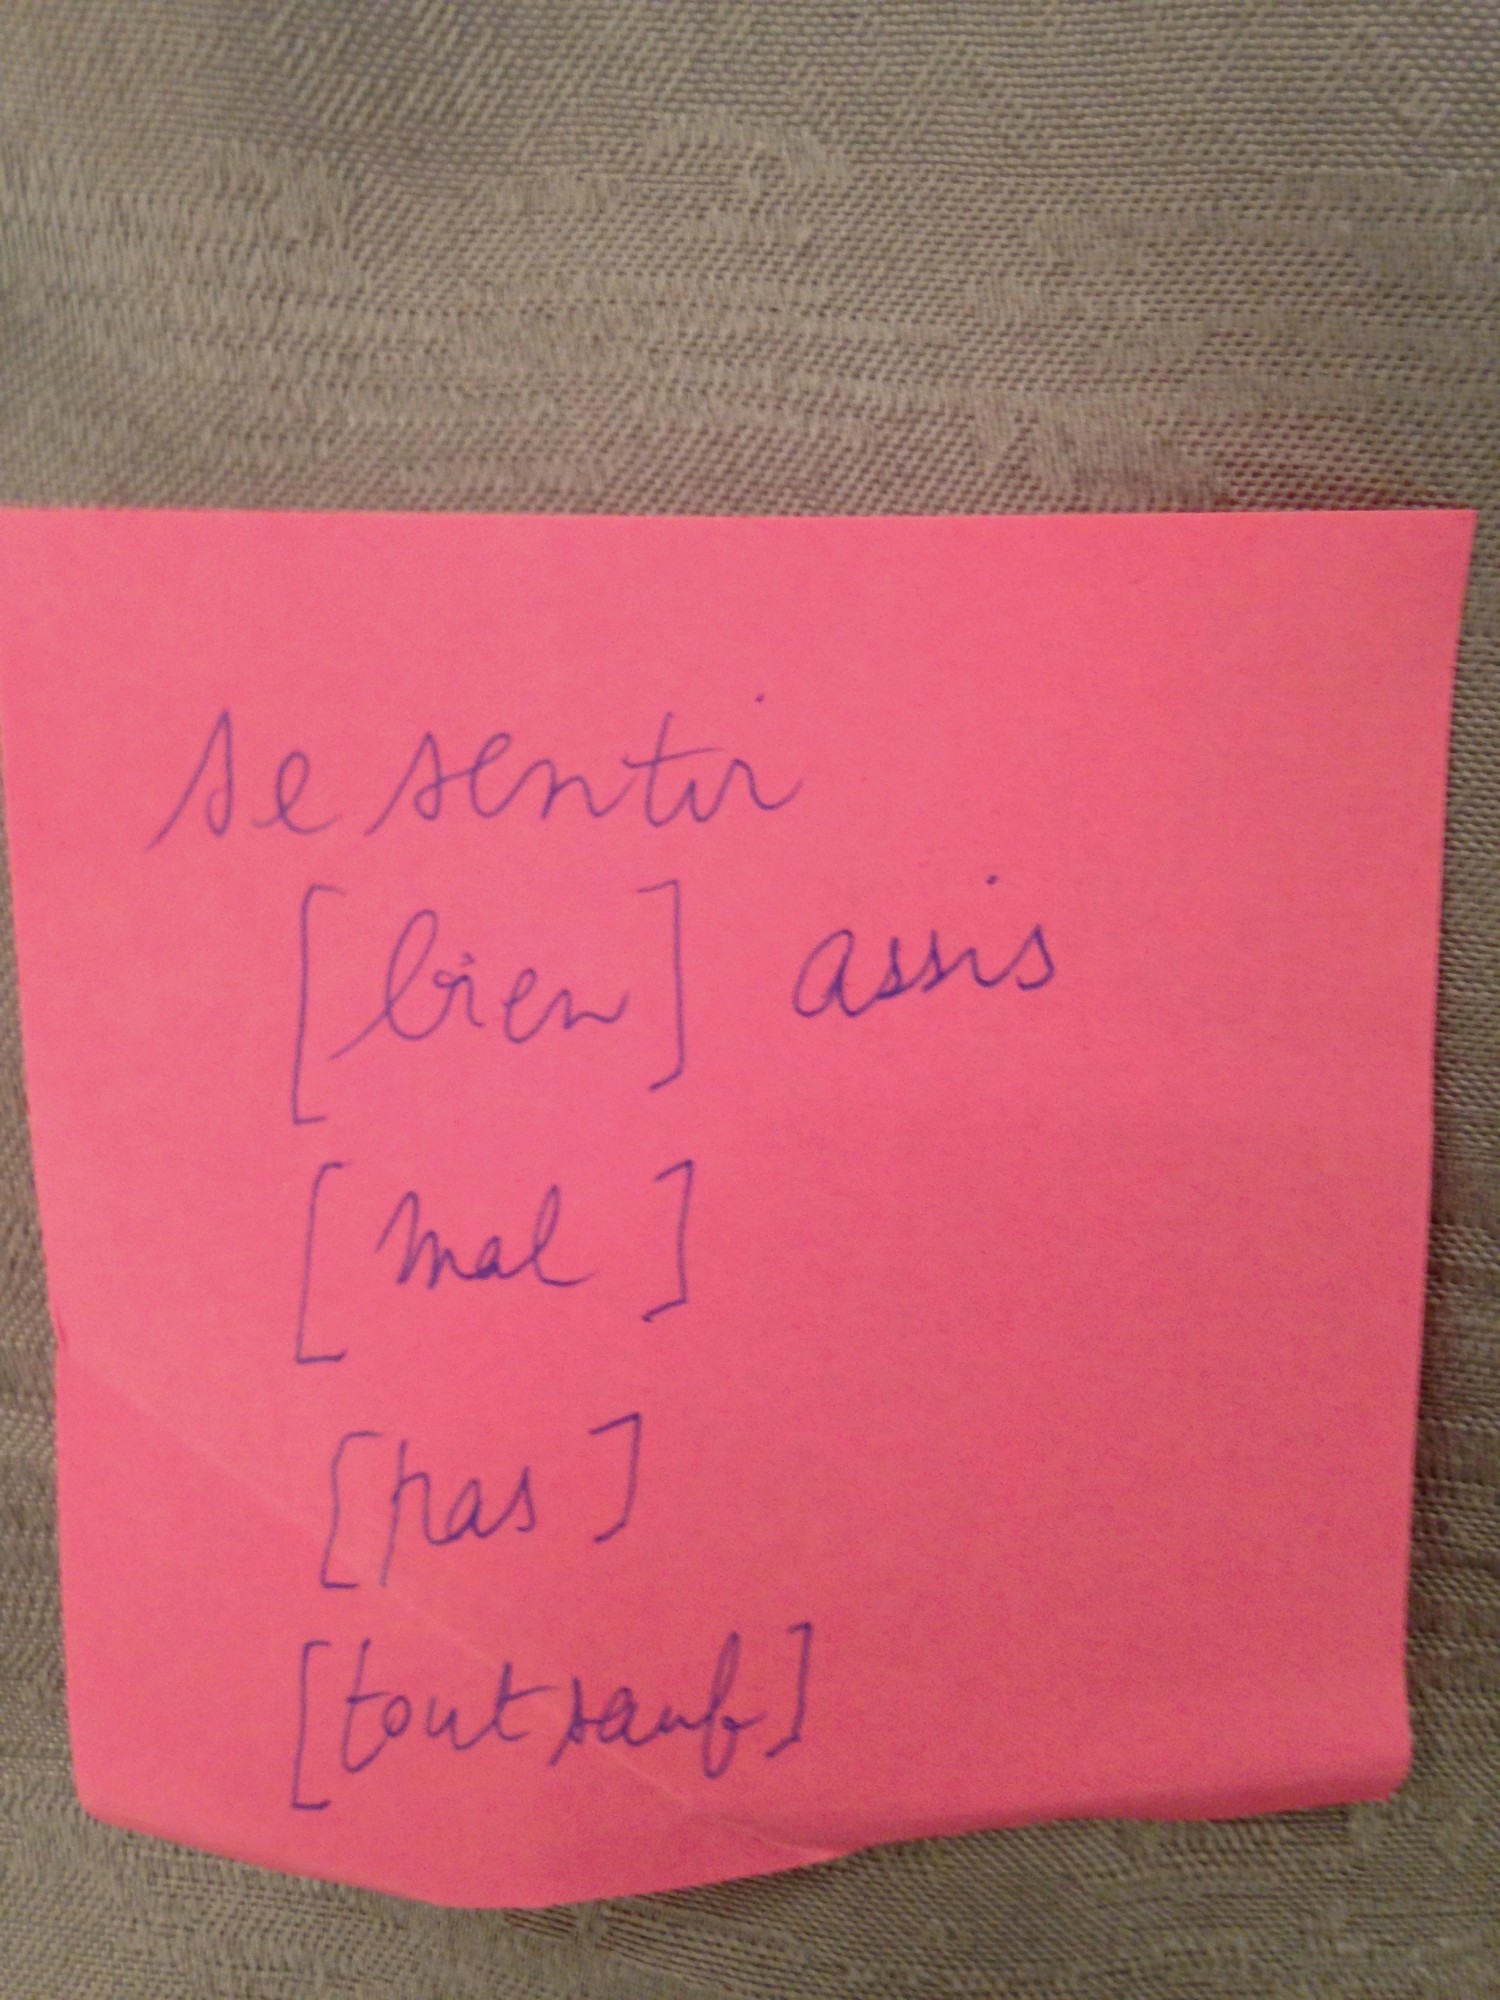 se sentir
[bien] assis
[mal]
[pas]
[tout sauf]